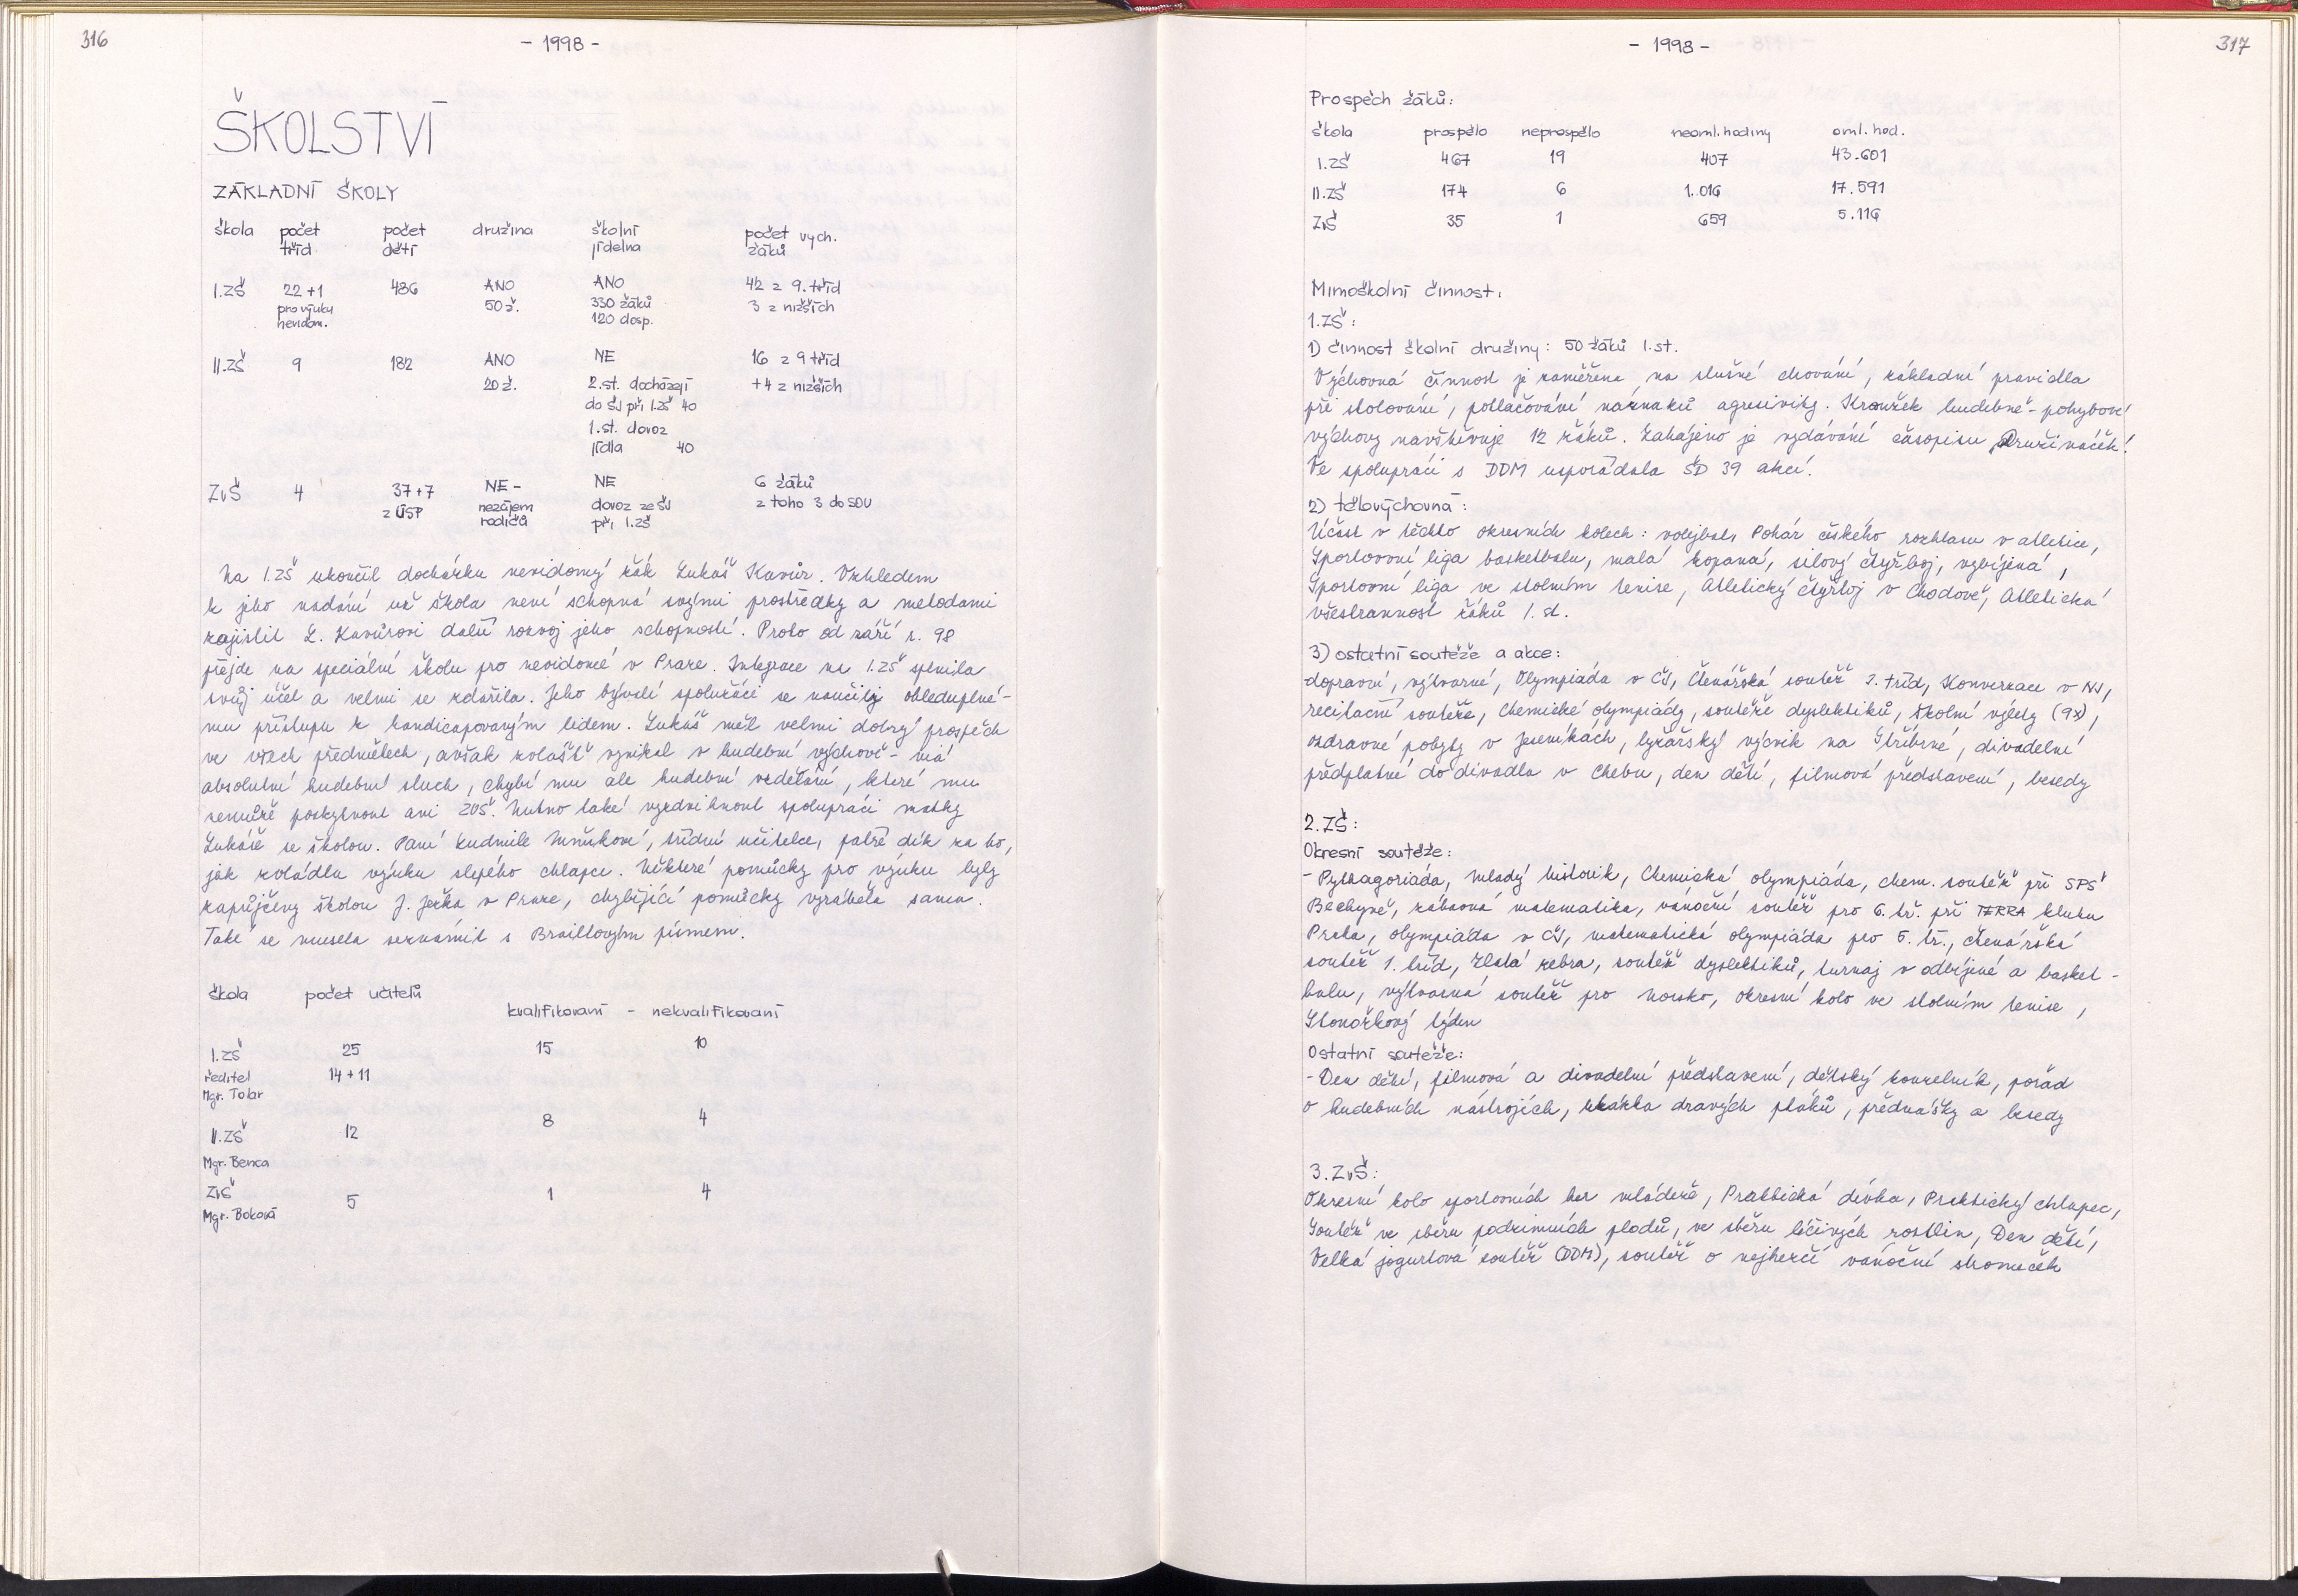 316
- 1998 -
ŠKOLSTVÍ
ZÁKLADNÍ ŠKOLY
škola počet tříd počet dětí družina školní jídelna počet vych. žáků
I.ZŠ 22+1 486 ANO ANO 42 z 9. tříd
pro výuku 50 ž. 330 žáků 3 z nižších
nevidom. 120 dosp.
II.ZŠ 9 182 ANO NE 16 z 9 tříd
20 ž. 2.st. docházejí +4 z nižších
do ŠJ při 1.ZŠ 40
1.st. dovoz
jídla 40
ZvŠ 4 37+7 NE - NE 6 žáků
z ÚSP nezájem dovoz ze ŠJ z toho 3 do SOU
rodičů při 1.ZŠ
Na 1.ZŠ ukončil docházku nevidomý žák Lukáš Kavůr. Vzhledem
k jeho nadání už škola není schopná svými prostředky a metodami
zajistit L. Kavůrovi další rozvoj jeho schopností. Proto od září r. 98
přejde na speciální školu pro nevidomé v Praze. Integrace na 1.ZŠ splnila
svůj účel a velmi se zdařila. Jeho bývalí spolužáci se naučily ohleduplné-
mu přístupu k handicapovaným lidem. Lukáš měl velmi dobrý prospěch
ve všech předmětech, avšak zvlášť vynikal v hudební výchově - má
absolutní hudební sluch, chybí mu ale hudební vzdělání, které mu
nemůže poskytnout ani ZUŠ. Nutno také vyzdvihnout spolupráci matky
Lukáše se školou. Paní Ludmile, třídní učitelce, patří dík za to,
jak zvládla výuku slepého chlapce. Některé pomůcky pro výuku byly
zapůjčeny školou J. Ježka v Praze, chybějící pomůcky vyráběla sama.
Také se musela seznámit s Braillovým písmem.
škola počet učitelů
kvalifikovaní - nekvalifikovaní
I.ZŠ 25 15 10
ředitel 14+11
Mgr. Tolar
II.ZŠ 12 8 4
Mgr. Benca
ZvŠ 5 1 4
Mgr. Boková
- 1998 -
317
Prospěch žáků:
škola prospělo neprospělo neoml. hodiny oml. hod.
I.ZŠ 467 19 407 43.601
II.ZŠ 174 6 1.016 17.591
ZvŠ 35 1 659 5.116
Mimoškolní činnost:
1.ZŠ:
1) činnost školní družiny: 50 žáků 1.st.
Výchovná činnost je zaměřena na slušné chování, základní pravidla
při stolování, potlačování náznaků agresivity. Kroužek hudebně-pohybové
výchovy navštěvuje 12 žáků. Zahájeno je vydávání časopisu „Družináček“.
Ve spolupráci s DDM uspořádala ŠD 39 akcí.
2) tělovýchovná:
Účast v těchto okresních kolech: volejbal, Pohár českého rozhlasu v atletice,
Sportovní liga basketbalu, malá kopaná, silový čtyřboj, vybíjená,
Sportovní liga ve stolním tenise, Atletický čtyřboj v Chodově, Atletická
všestrannost žáků 1. st.
3) ostatní soutěže a akce:
dopravní, výtvarné, Olympiáda v ČJ, Čtenářská soutěž 2. tříd, Konverzace v NJ,
recitační soutěže, Chemické olympiády, soutěže dyslektiků, školní výlety (9x),
ozdravné pobyty v Jeseníkách, lyžařský výcvik na Stříbrné, divadelní
předplatné do divadla v Chebu, den dětí, filmová představení, besedy
2.ZŠ:
Okresní soutěže:
- Pythagoriáda, Mladý historik, Chemická olympiáda, chem. soutěž při SPŠ
Bechyně, zábavná matematika, vánoční soutěž pro 6. tř. při TERRA klubu
Praha, olympiáda v ČJ, matematická olympiáda pro 5. tř., čtenářská
soutěž 1. tříd, Zlatá zebra, soutěž dyslektiků, turnaj v odbíjené a basket-
balu, výtvarná soutěž pro Norsko, okresní kolo ve stolním tenise,
Stonožkový týden
Ostatní soutěže:
- Den dětí, filmová a divadelní představení, dětský kouzelník, pořad
o hudebních nástrojích, ukázka dravých ptáků, přednášky a besedy
3.ZvŠ:
Okresní kolo sportovních her mládeže, Praktická dívka, Praktický chlapec,
Soutěž ve sběru podzimních plodů, ve sběru léčivých rostlin, Den dětí,
Velká jogurtová soutěž (DDM), soutěž o nejhezčí vánoční stromeček